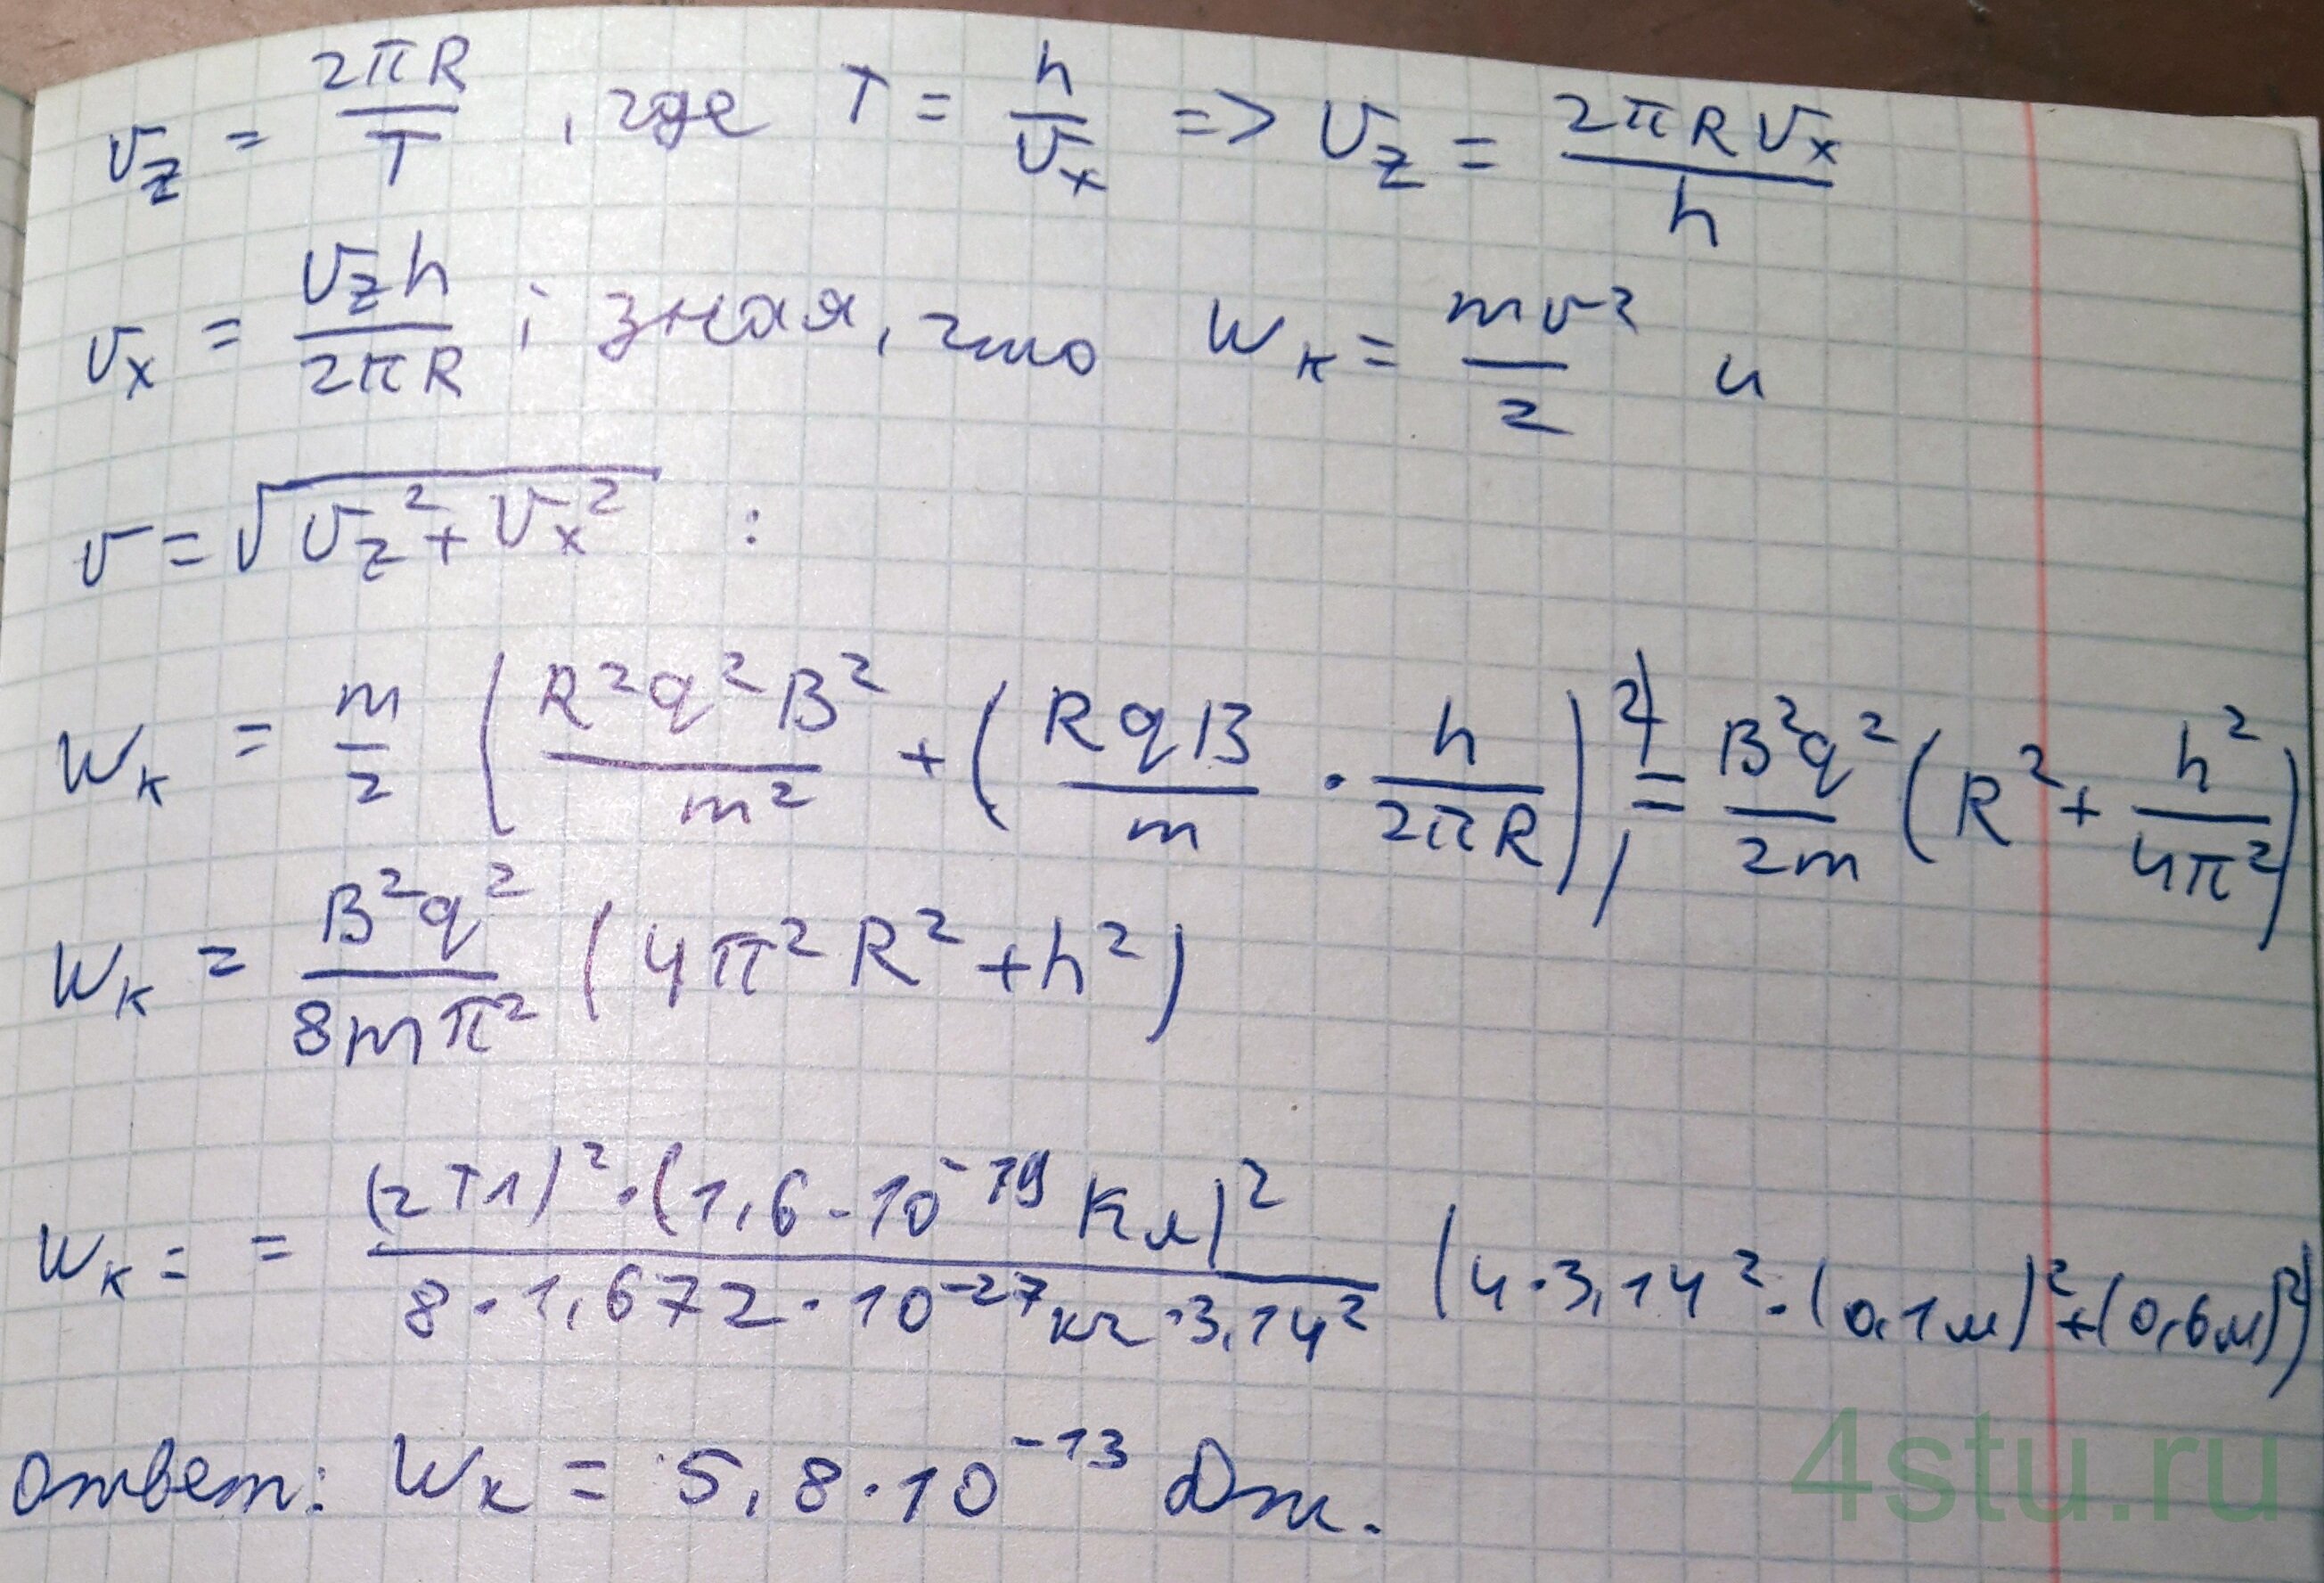 v_z = 2πR/T , где T = h/v_x => v_z = 2πRv_x/h
v_x = v_z h/2πR ; зная, что W_к = mv²/2 и
v = √(v_z² + v_x²) :
W_к = m/2 (R²q²B²/m² + (RqB/m · h/2πR)²) = B²q²/2m (R² + h²/4π²)
W_к = B²q²/8mπ² (4π²R² + h²)
W_к = = (2Тл)²·(1,6·10⁻¹⁹Кл)²/8·1,672·10⁻²⁷кг·3,14² (4·3,14²·(0,1м)²+(0,6м)²)
Ответ: W_к = 5,8·10⁻¹³ Дж.
4stu.ru